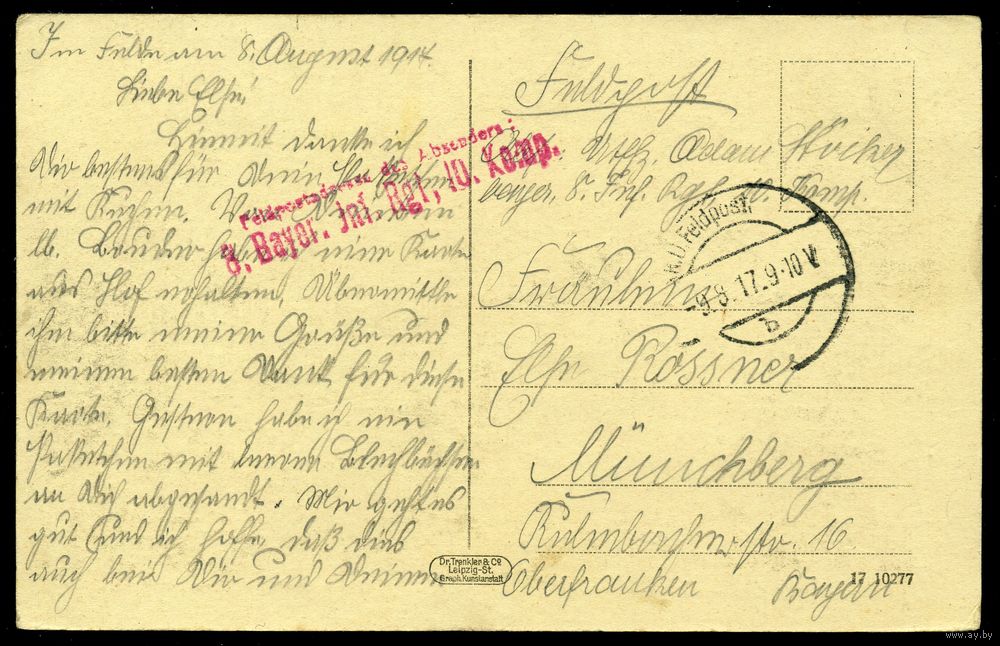 Im Felde am 8. August 1917.
Liebe Else!
Hiermit danke ich
Dir bestens für Dein
mit Kuchen. Von Deinem
lb. Bruder habe ich eine Karte
aus Hof erhalten. Übermittle
ihm bitte meine Grüße und
meinen besten Dank für diese
Karte. Gestern habe ich ein
Paketchen mit leeren Blechbüchsen
an Dich abgesandt. Mir geht es
gut und ich hoffe, daß dies
auch bei Dir und Deinen
Feldpostadresse des Absenders:
8. Bayer. Inf. Rgt, 10. Komp.
Feldpost
Uffz. Adam Stöcker
berger, 8. Inf. Rgt. 10. Komp.
K.D. Feldpost
-9.8.17.9-10 V
b
Fräulein
Else Rössner
Münchberg
Kulmbacherstr. 16
Oberfranken Bayern
Dr. Trenkler & Co
Leipzig-St.
Graph. Kunstanstalt
17 10277
www.ay.by